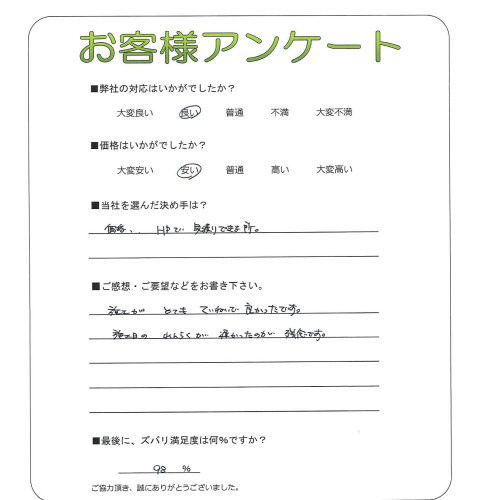 お客様アンケート
■弊社の対応はいかがでしたか？
大変良い 良い 普通 不満 大変不満
■価格はいかがでしたか？
大変安い 安い 普通 高い 大変高い
■当社を選んだ決め手は？
価格、、HPで 見積りできる所。
■ご感想・ご要望などをお書き下さい。
施工が とても ていねいで 良かったです。
施工日の れんらくが 遅かったのが 残念です。
■最後に、ズバリ満足度は何%ですか？
98 %
ご協力頂き、誠にありがとうございました。